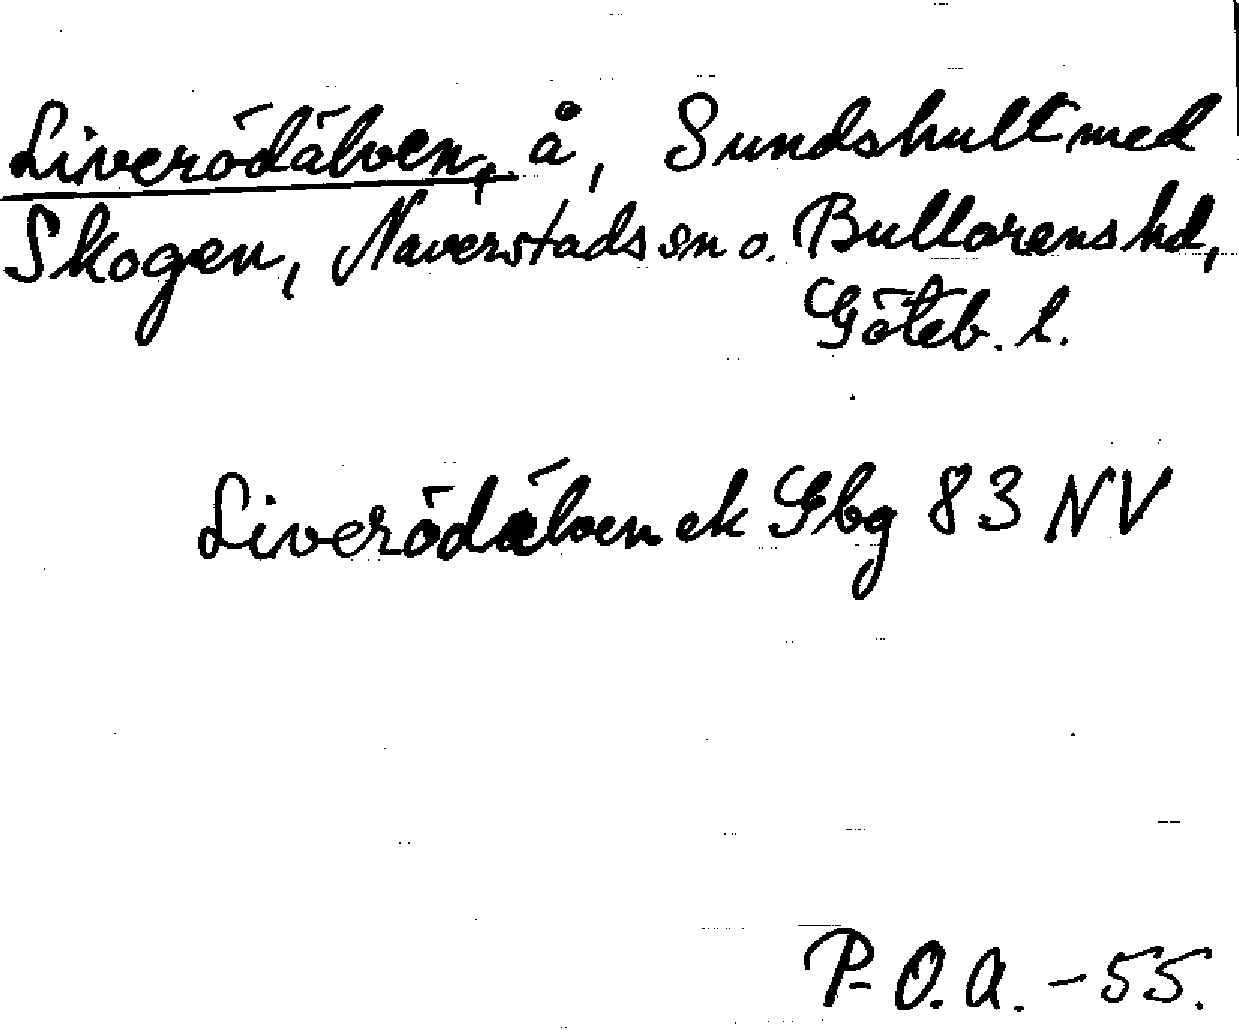 Liverödälven, å, Sundshult med
Skogen, Naverstads sn o. Bullarens hd,
Göteb. l.
Liverödälven ek Gbg 83 NV
P-O.A. -55.